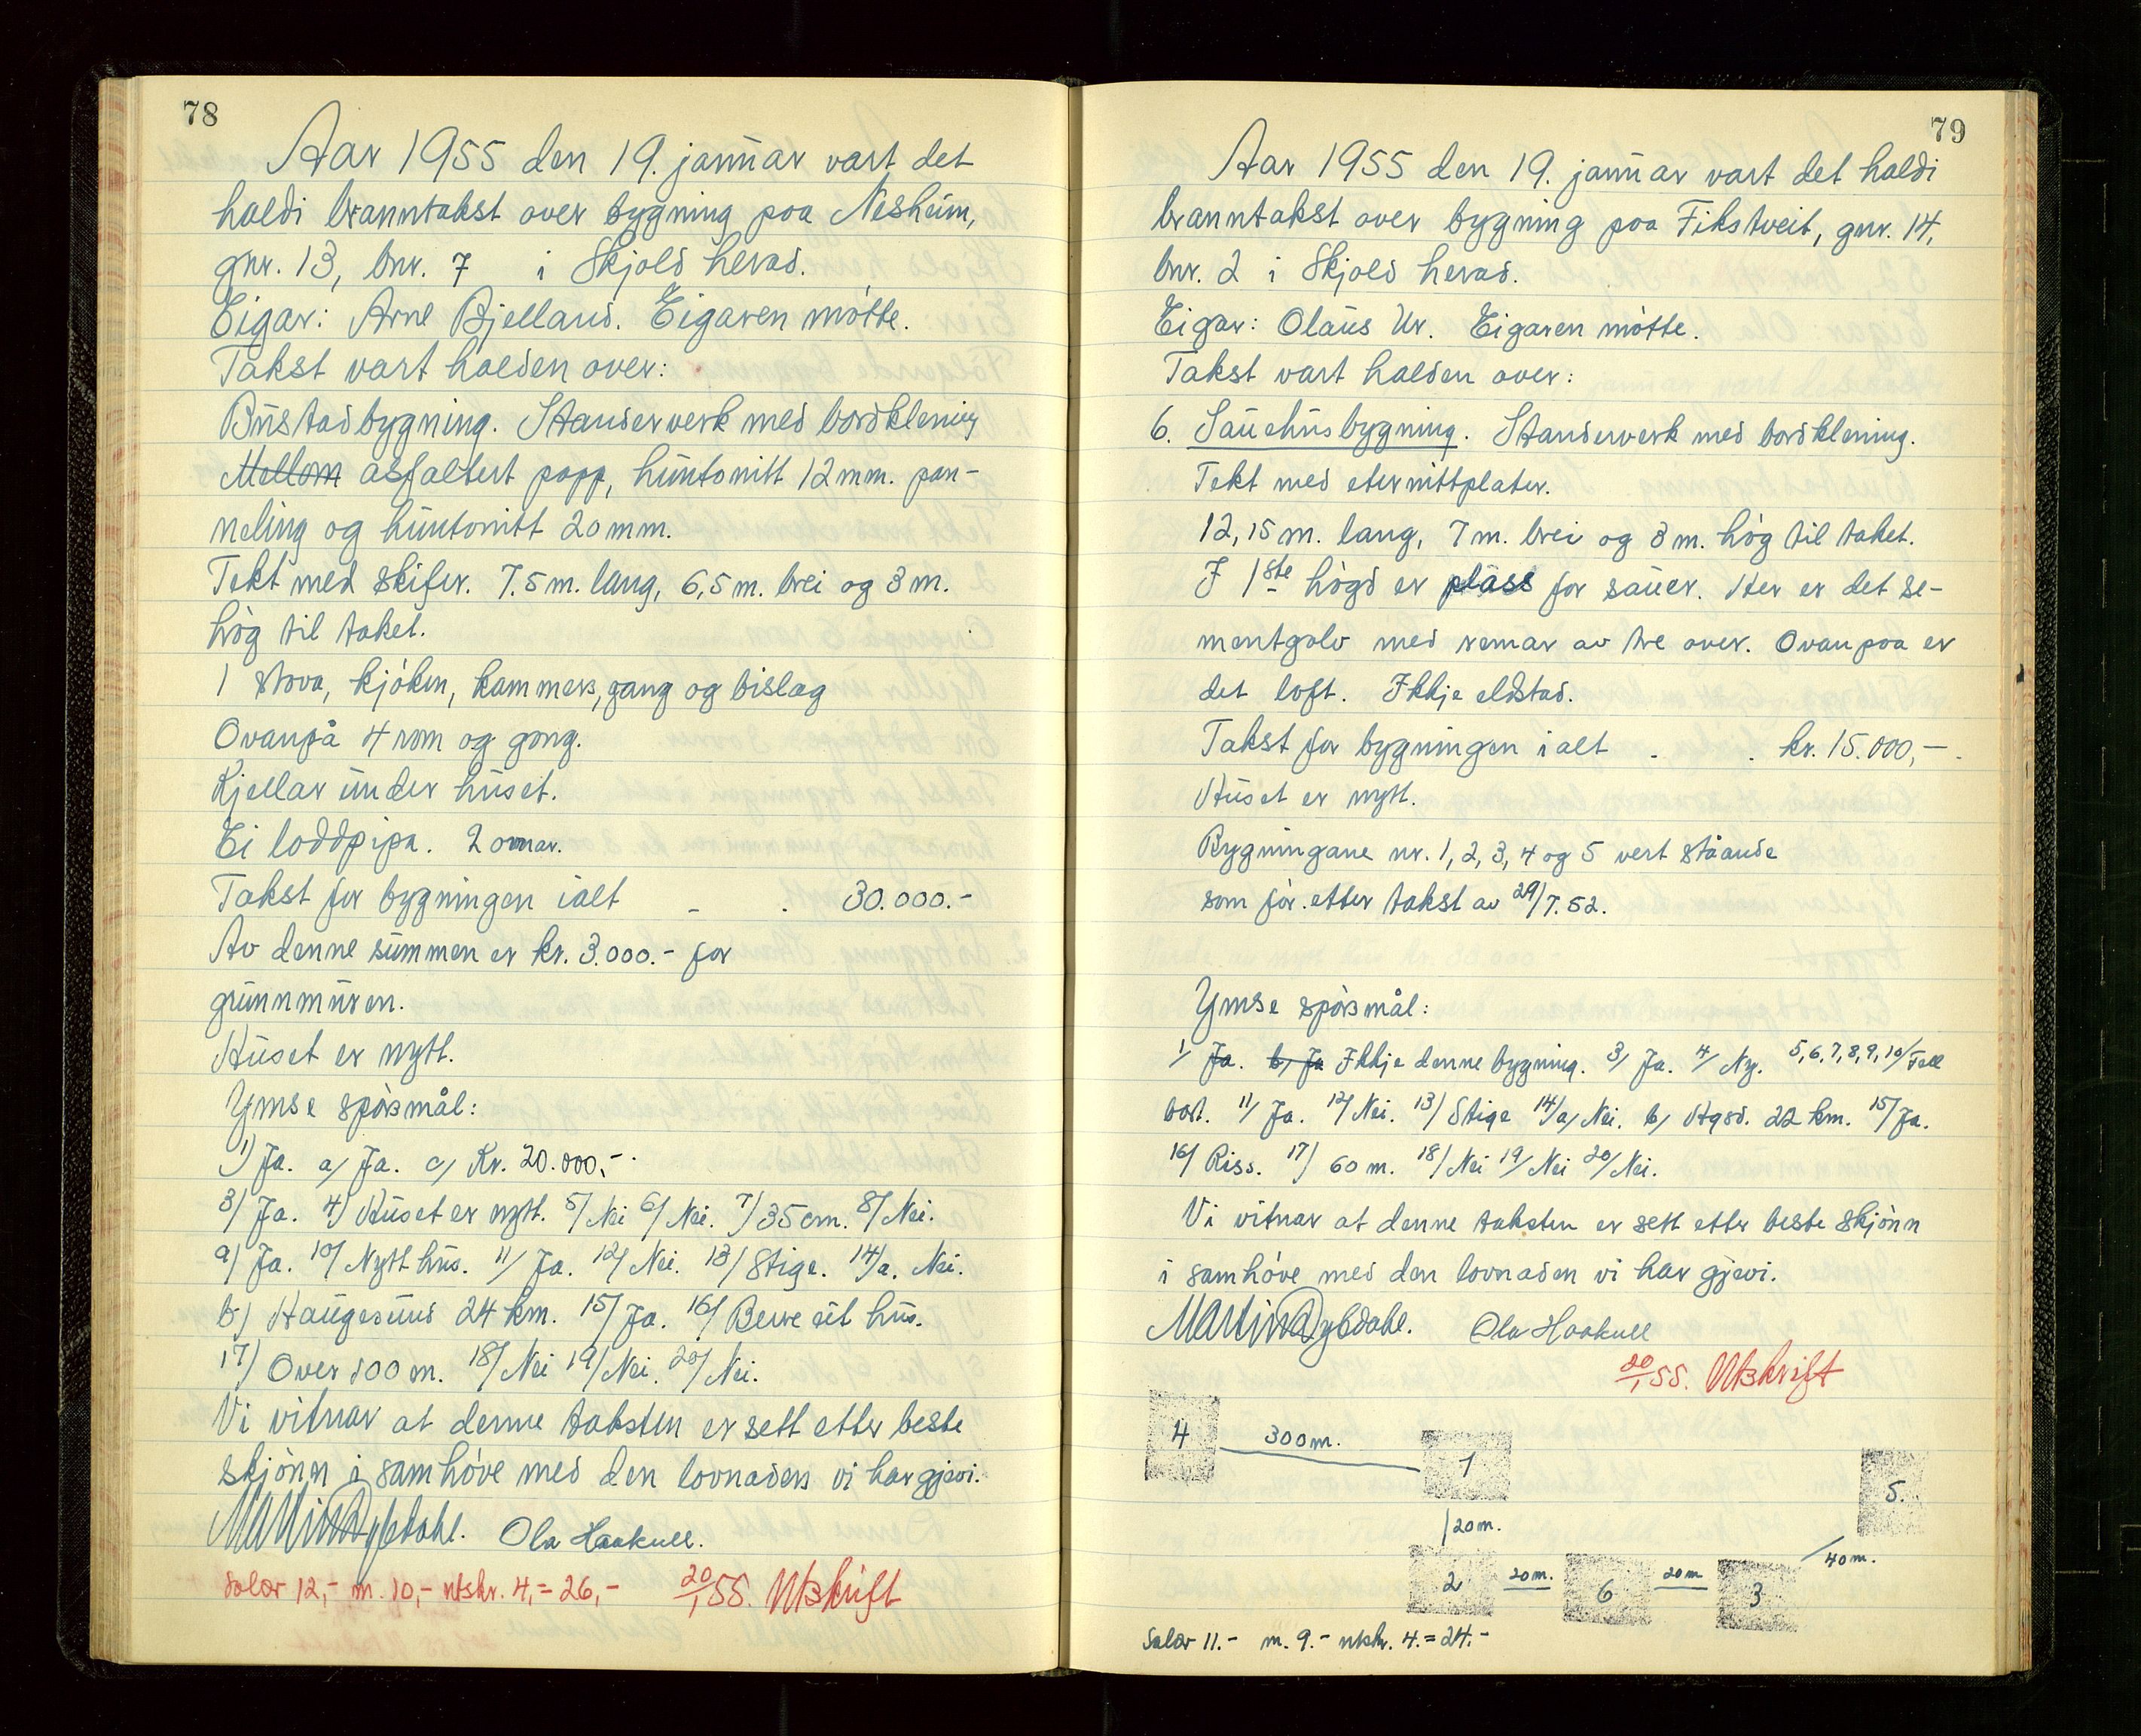 78
Aar 1955 den 19. januar vart det
haldi branntakst over bygning paa Nesheim,
gnr. 13, bnr. 7 i Skjold herad.
Eigar: Arne Bjelland. Eigaren møtte.
Takst vart halden over:
Bustadbygning. Standerverk med bordklening
Mellom asfaltert papp, huntonitt 12 mm. pan-
neling og huntonitt 20 mm.
Tekt med skifer. 7.5 m. lang, 6,5 m. brei og 3 m.
høg til taket.
1 stova, kjøken, kammers, gang og bislag
Ovanpå 4 rom og gang.
Kjellar under huset.
Ei loddpipa. 2 omnar.
Takst for bygningen ialt - . 30.000.-
Av denne summen er kr. 3.000.- for
grunnmuren.
Huset er nytt.
Ymse spørsmål:
1) Ja. a/ Ja. c/ Kr. 20.000,-.
3) Ja. 4) Huset er nytt. 5/ Nei 6/ Nei. 7) 35 cm. 8/ Nei.
9) Ja. 10/ Nytt hus. 11/ Ja. 12/ Nei. 13/ Stige. 14/a. Nei.
b) Haugesund 24 km. 15/ Ja. 16/ Berre eit hus.
17) Over 100 m. 18/ Nei 19/ Nei. 20/ Nei.
Vi vitnar at denne taksten er sett etter beste
skjønn i samhøve med den lovnaden vi har gjevi.
Martin Dybdahl. Ola Haakull.
Salær 12,- m. 10,- utskr. 4,= 26,- 20/1 55. Utskrift
79
Aar 1955 den 19. januar vart det haldi
branntakst over bygning paa Fikstveit, gnr. 14,
bnr. 2 i Skjold herad.
Eigar: Olaus Ur. Eigaren møtte.
Takst vart halden over:
6. Sauehusbygning. Standerverk med bordklening.
Tekt med eternittplater.
12,15 m. lang, 7 m. brei og 3 m. høg til taket.
I 1ste høgd er plass for sauer. Her er det se-
mentgolv med remar av tre over. Ovanpaa er
det loft. Ikkje eldstad.
Takst for bygningen ialt . . kr. 15.000,-.
Huset er nytt.
Bygningane nr. 1, 2, 3, 4 og 5 vert ståande
som før. etter takst av 29/7. 52.
Ymse spørsmål:
1/ Ja. b/ Ja Ikkje denne bygning. 3/ Ja. 4/ Ny. 5, 6, 7, 8, 9, 10/ Fell
bort. 11/ Ja. 12/ Nei. 13/ Stige 14/a/ Nei. b/ Hgsd. 22 km. 15/ Ja.
16/ Riss. 17) 60 m. 18/ Nei 19/ Nei 20/ Nei.
Vi vitnar at denne taksten er sett etter beste skjønn
i samhøve med den lovnaden vi har gjevi.
Martin Dybdahl. Ola Haakull
20/1 55. Utskrift
4 300 m. 1
5.
20 m.
40 m.
2 20 m. 6 20 m 3
Salær 11.- m. 9.- utskr. 4.= 24.-